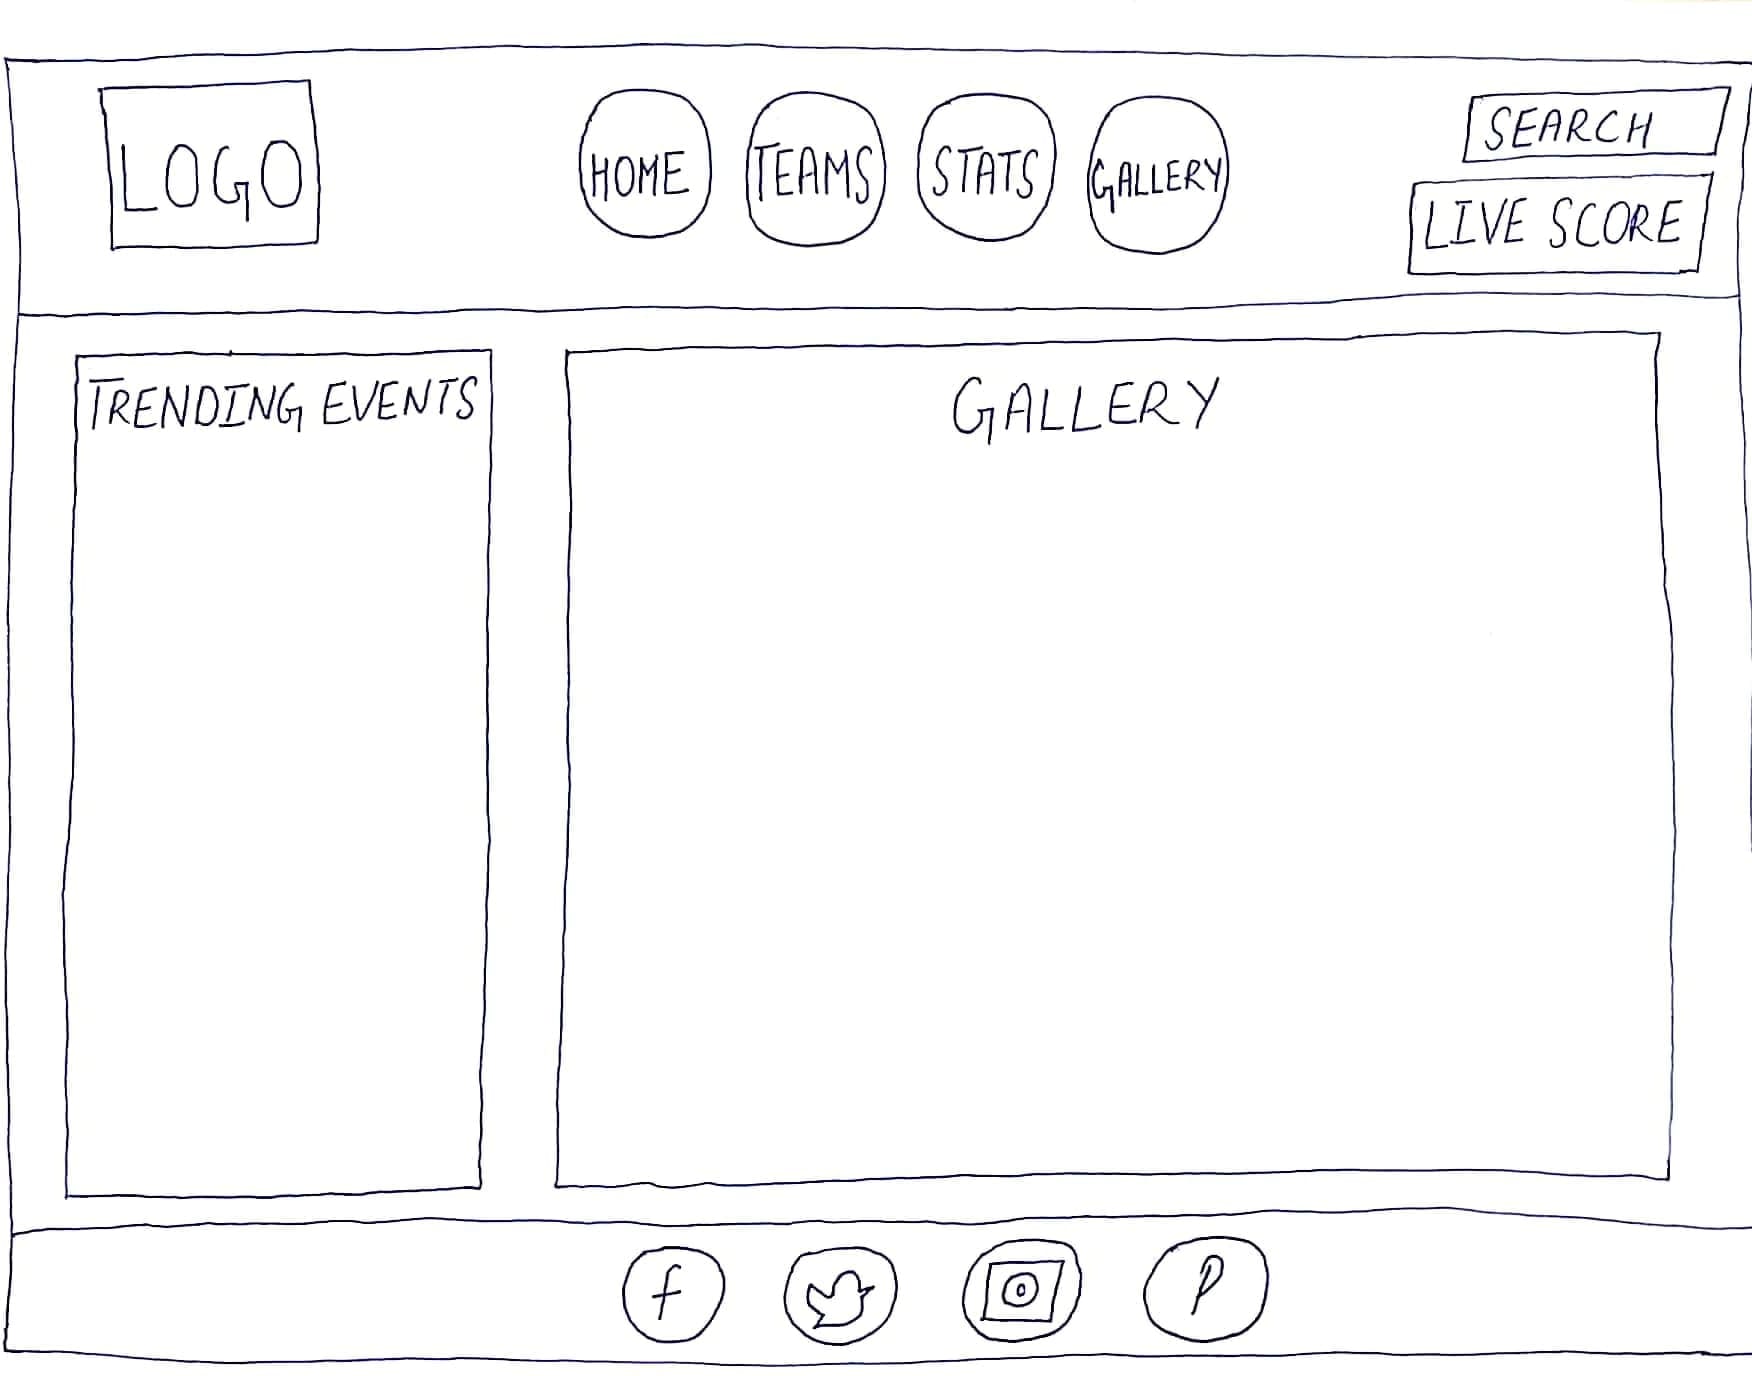 LOGO
HOME
TEAMS
STATS
GALLERY
SEARCH
LIVE SCORE
TRENDING EVENTS
GALLERY
f
P